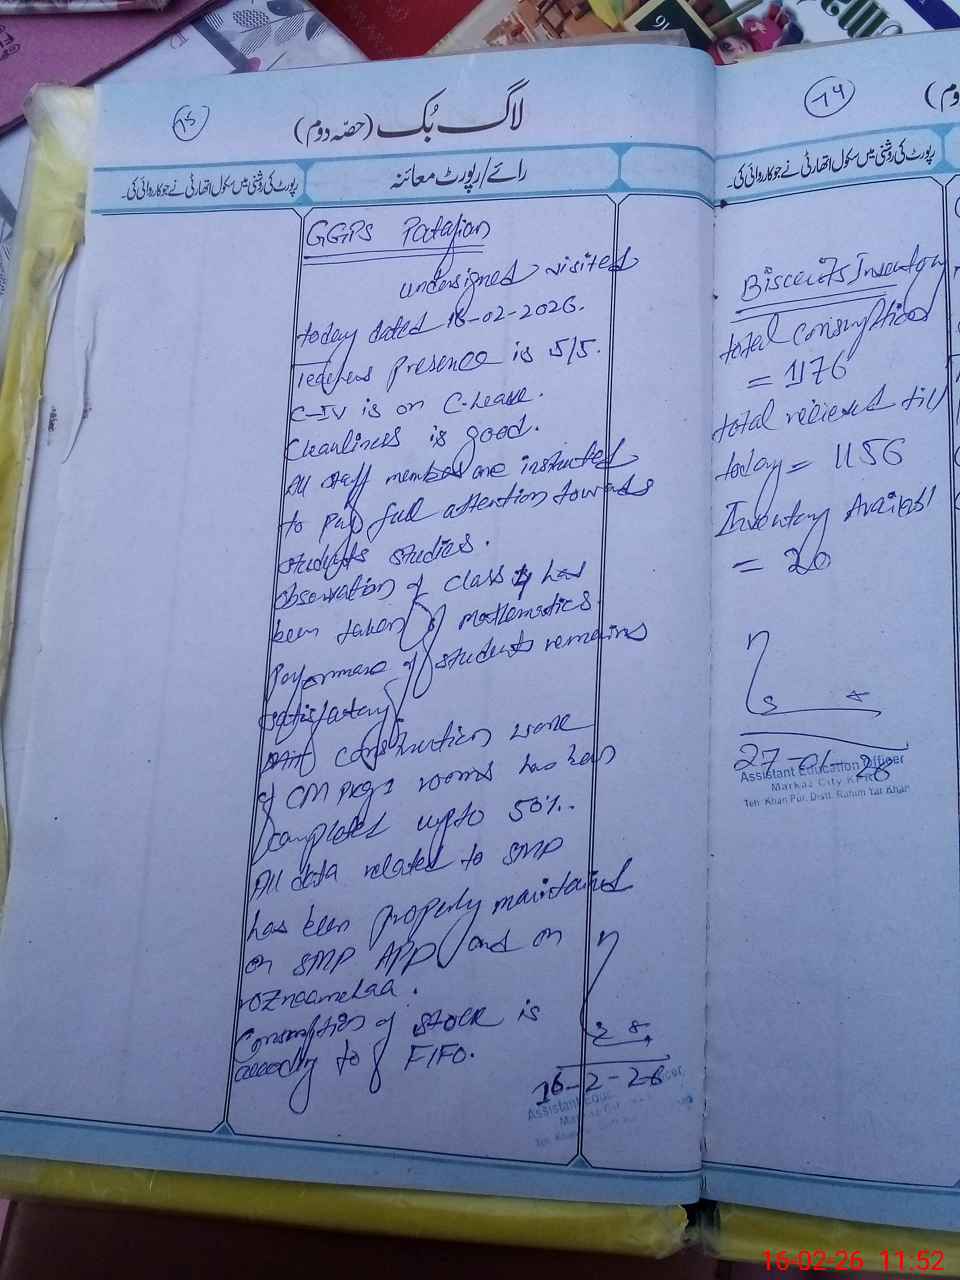 75
لاگ بُک (حصّہ دوم)
رپورٹ کی روشنی میں سکول اتھارٹی نے جو کاروائی کی۔
رائے/رپورٹ معائنہ
GGPS Patafian
undersigned visited
today dated 16-02-2026.
Teachers presence is 5/5.
C-IV is on C-Lease.
Cleanliness is good.
All staff members are instructed
to pay full attention towards
students studies.
Observation of class 4 has
been taken of mathematics.
Performance of students remains
satisfactory.
construction work
of CM rooms has been
completed upto 50%.
All data related to SMP
has been properly maintained
on SMP APP and on
roznamchaa.
Consumption of stock is
according to FIFO.
16-2-26
Assistant Education Officer
74
رپورٹ کی روشنی میں سکول اتھارٹی نے جو کاروائی کی۔
Biscuits Inventory
total consumption
= 1176
total recieved till
today = 1156
Inventory Availabl
= 20
27-01-26
Assistant Education Officer
Markaz City KPR
Teh. Khan Pur, Distt. Rahim Yar Khan
16-02-26 11:52